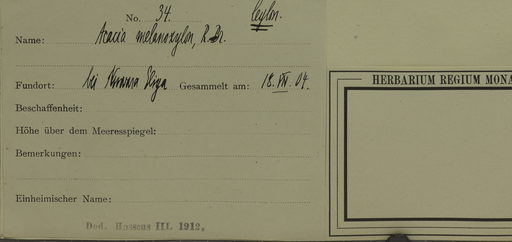 No. 34. Ceylon.
Name: Acacia melanoxylon, R. Br.
Fundort: bei Nuwara Eliya Gesammelt am: 18. XII. 04.
Beschaffenheit:
Höhe über dem Meeresspiegel:
Bemerkungen:
Einheimischer Name:
Ded. Hosseus III. 1912.
HERBARIUM REGIUM MONA